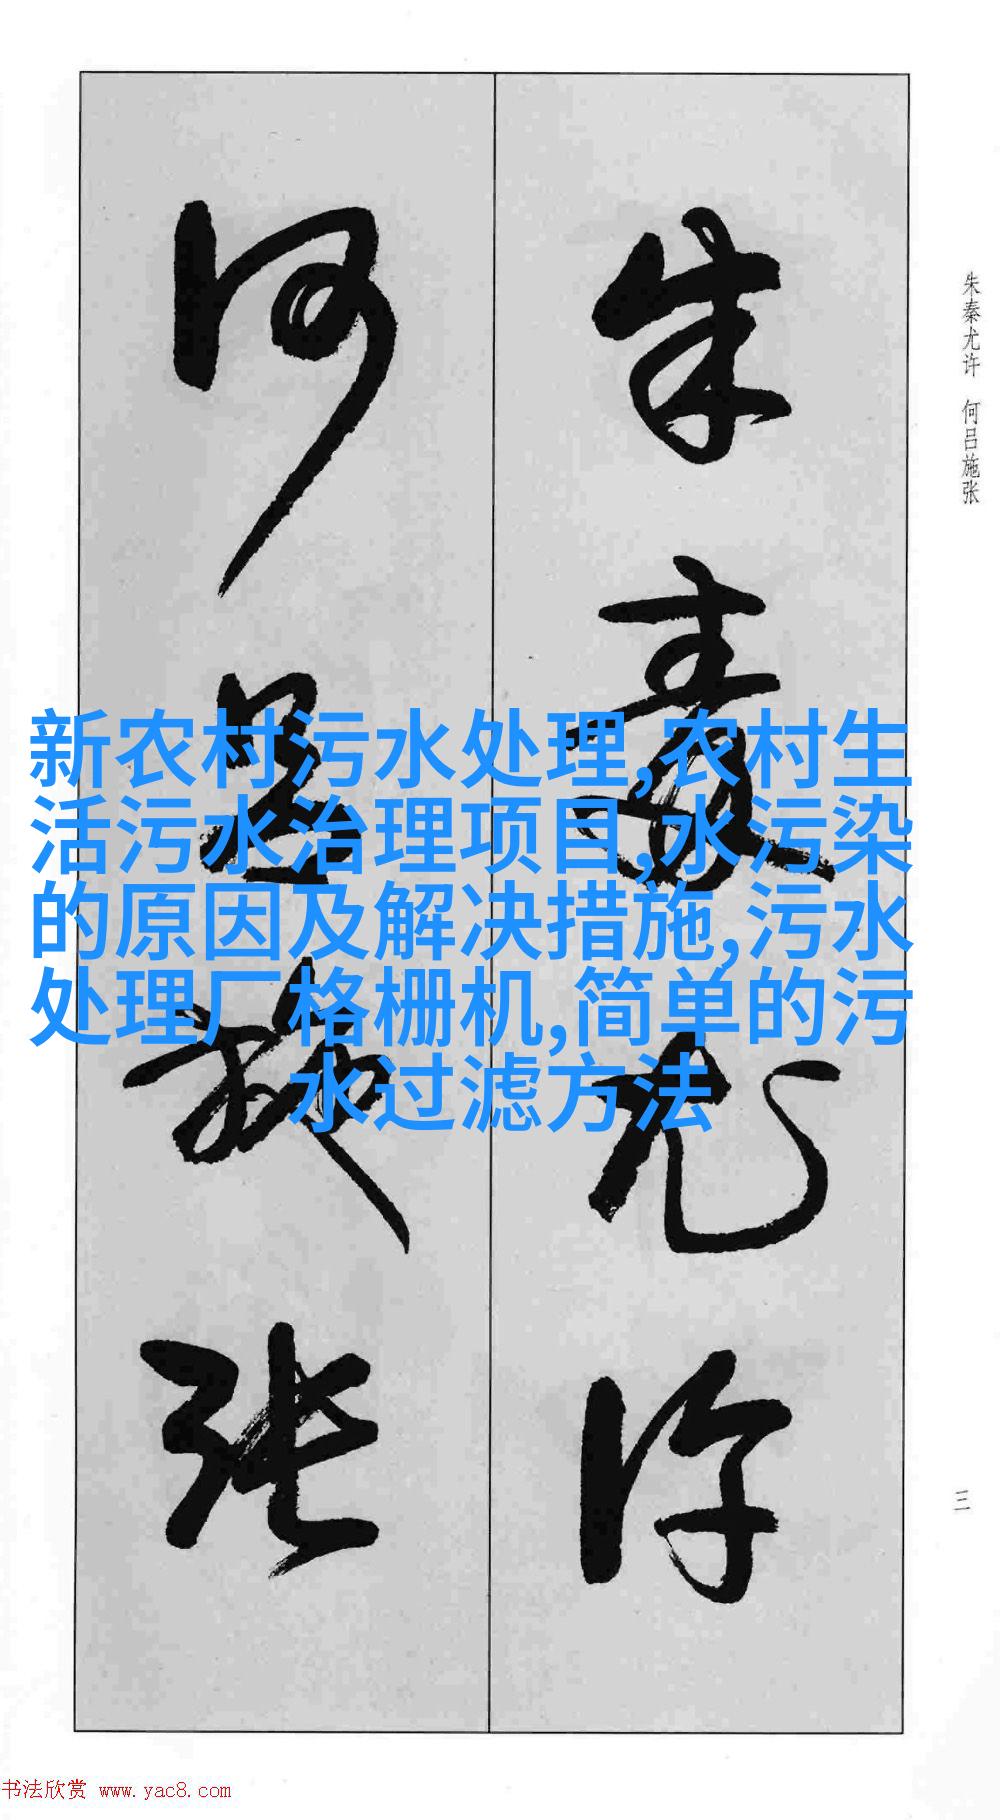 朱秦尤许
何吕施张
朱秦尤许 何吕施张
新农村污水处理,农村生
活污水治理项目,水污染
的原因及解决措施,污水
处理厂格栅机,简单的污
水过滤方法
三
书法欣赏 www.yac8.com